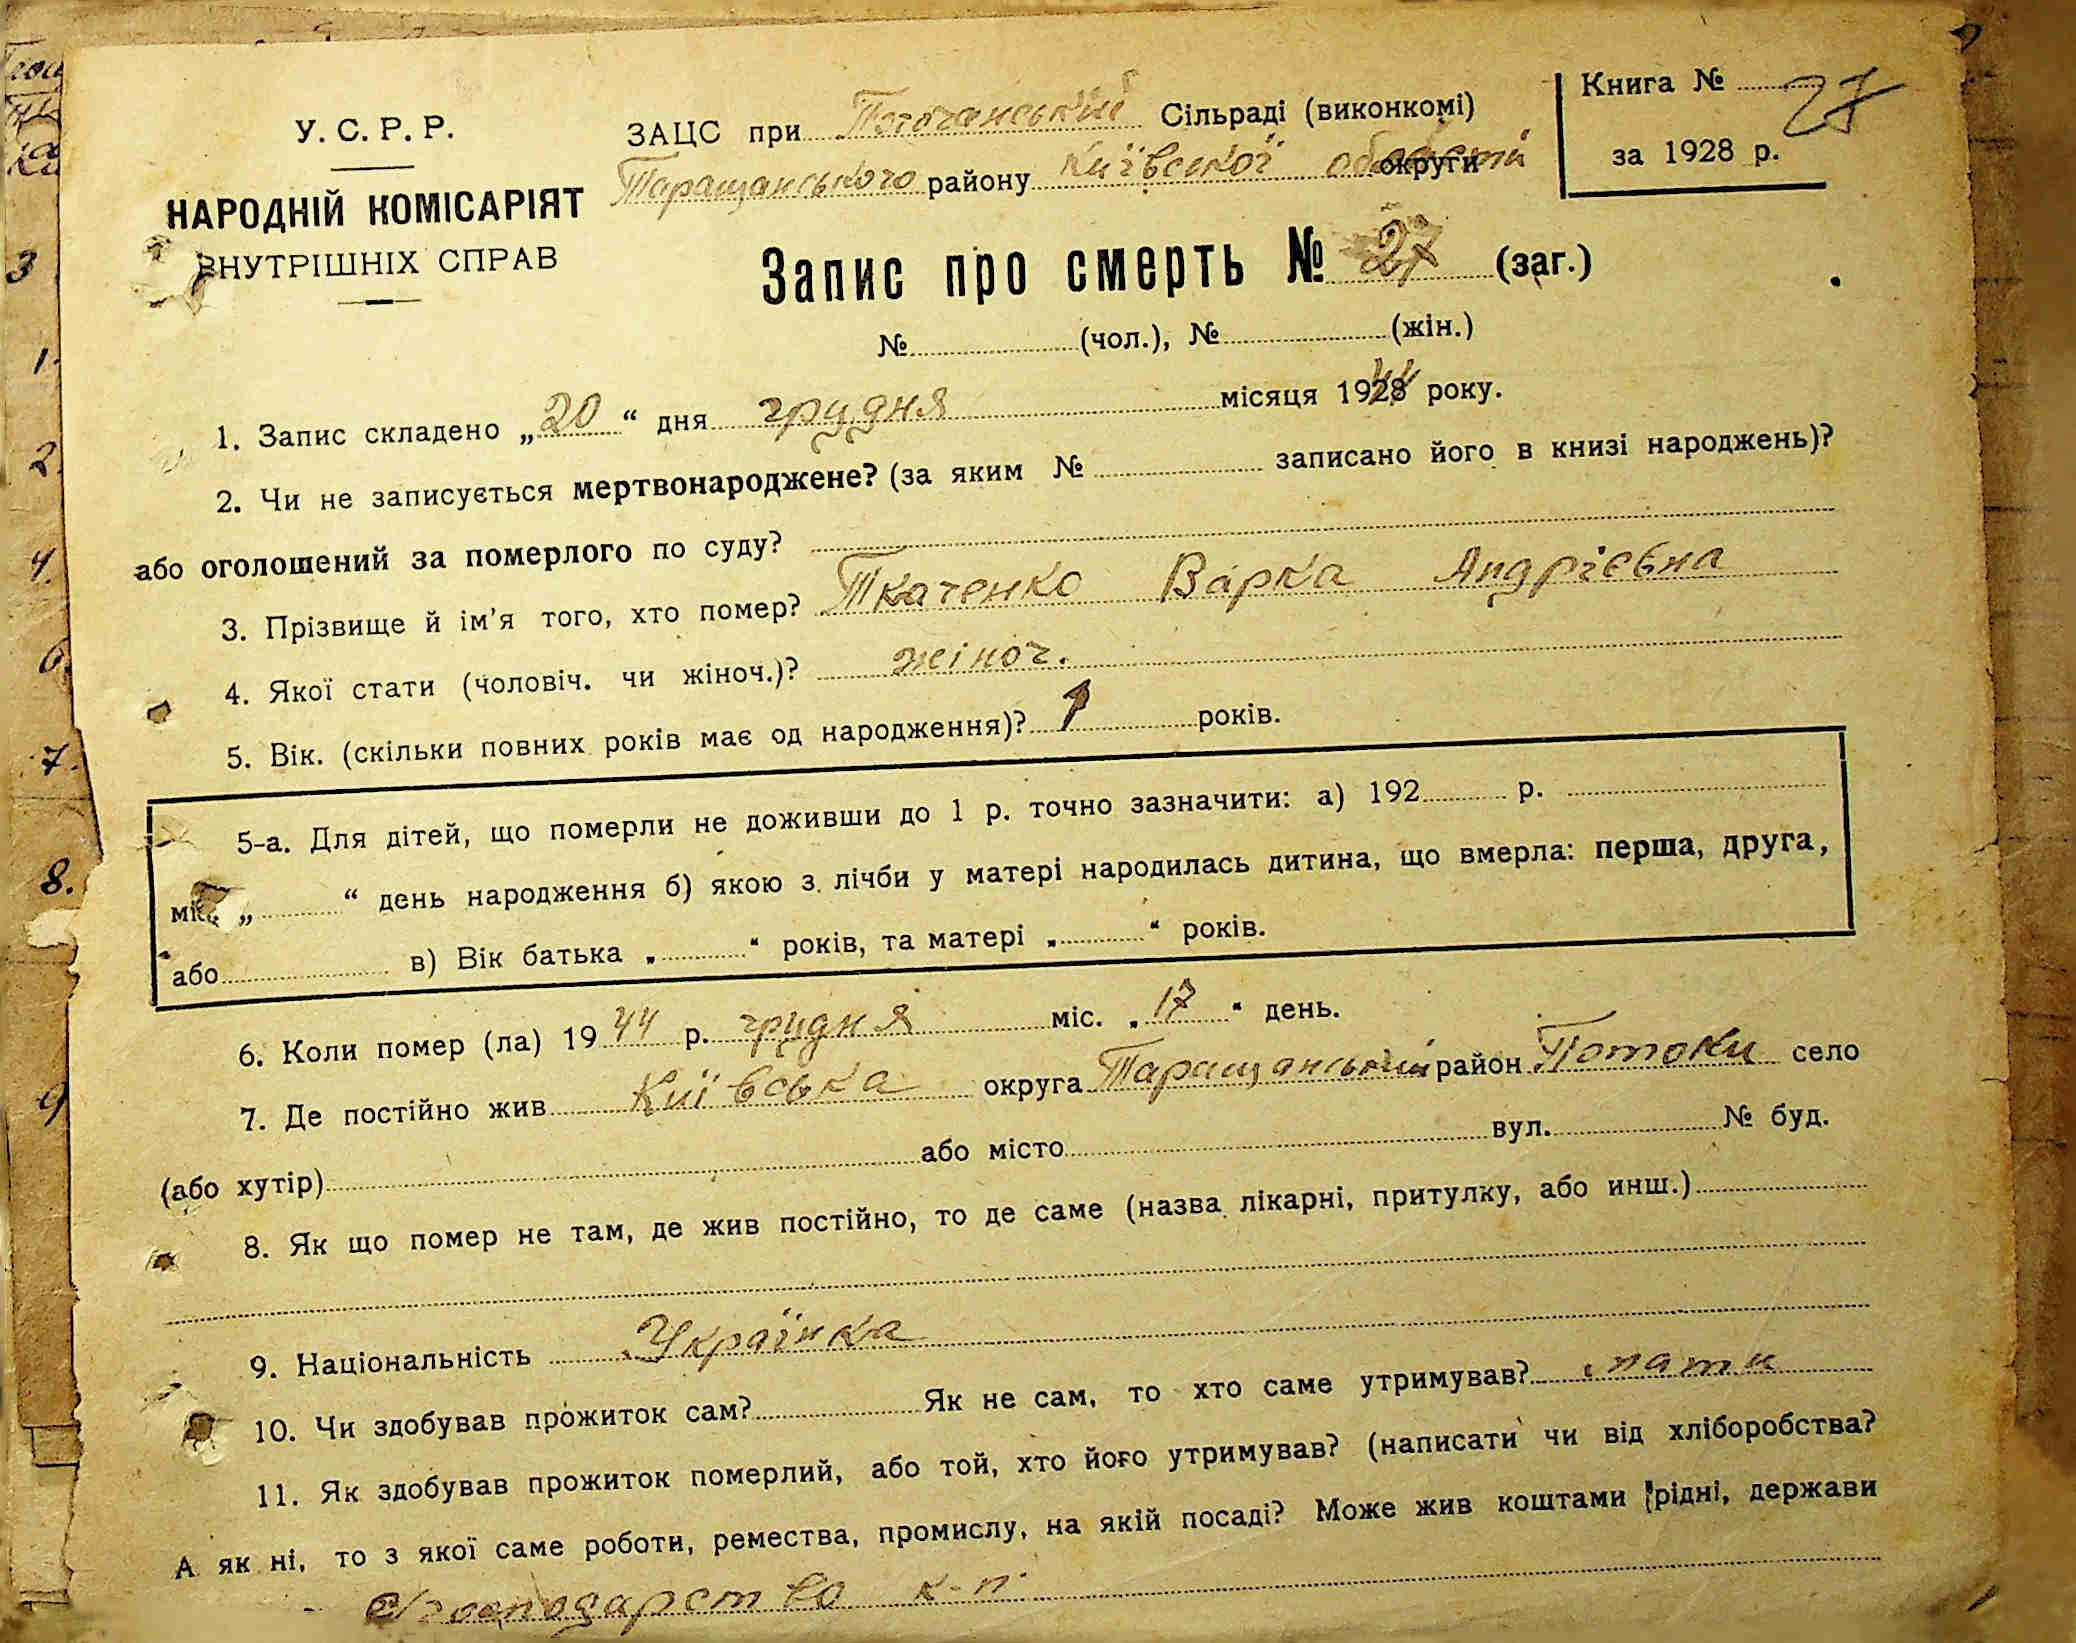 У. С. Р. Р.
НАРОДНІЙ КОМІСАРІЯТ
ВНУТРІШНІХ СПРАВ
ЗАЦС при Поточанській Сільраді (виконкомі)
Таращанського району Київської області округи
Книга № 27
за 1928 р.
Запис про смерть № 27 (заг.)
№ (чол.), № (жін.)
1. Запис складено „20“ дня грудня місяця 1928 44 року.
2. Чи не записується мертвонароджене? (за яким № записано його в книзі народжень)?
або оголошений за померлого по суду?
3. Прізвище й ім'я того, хто помер? Ткаченко Варка Андрієвна
4. Якої стати (чоловіч. чи жіноч.)? жіноч.
5. Вік. (скільки повних років має од народження)? 1 років.
5-а. Для дітей, що померли не доживши до 1 р. точно зазначити: а) 192 р.
міс. „ “ день народження б) якою з лічби у матері народилась дитина, що вмерла: перша, друга,
або в) Вік батька „ “ років, та матері „ “ років.
6. Коли помер (ла) 1944 р. грудня міс. „17“ день.
7. Де постійно жив Київська округа Таращанський район Потоки село
(або хутір) або місто вул. № буд.
8. Як що помер не там, де жив постійно, то де саме (назва лікарні, притулку, або инш.)
9. Національність Українка
10. Чи здобував прожиток сам? Як не сам, то хто саме утримував? мати
11. Як здобував прожиток померлий, або той, хто його утримував? (написати чи від хліборобства?
А як ні, то з якої саме роботи, ремества, промислу, на якій посаді? Може жив коштами рідні, держави
С/господарство к-п.
3
1.
2.
4.
6.
7.
8.
9